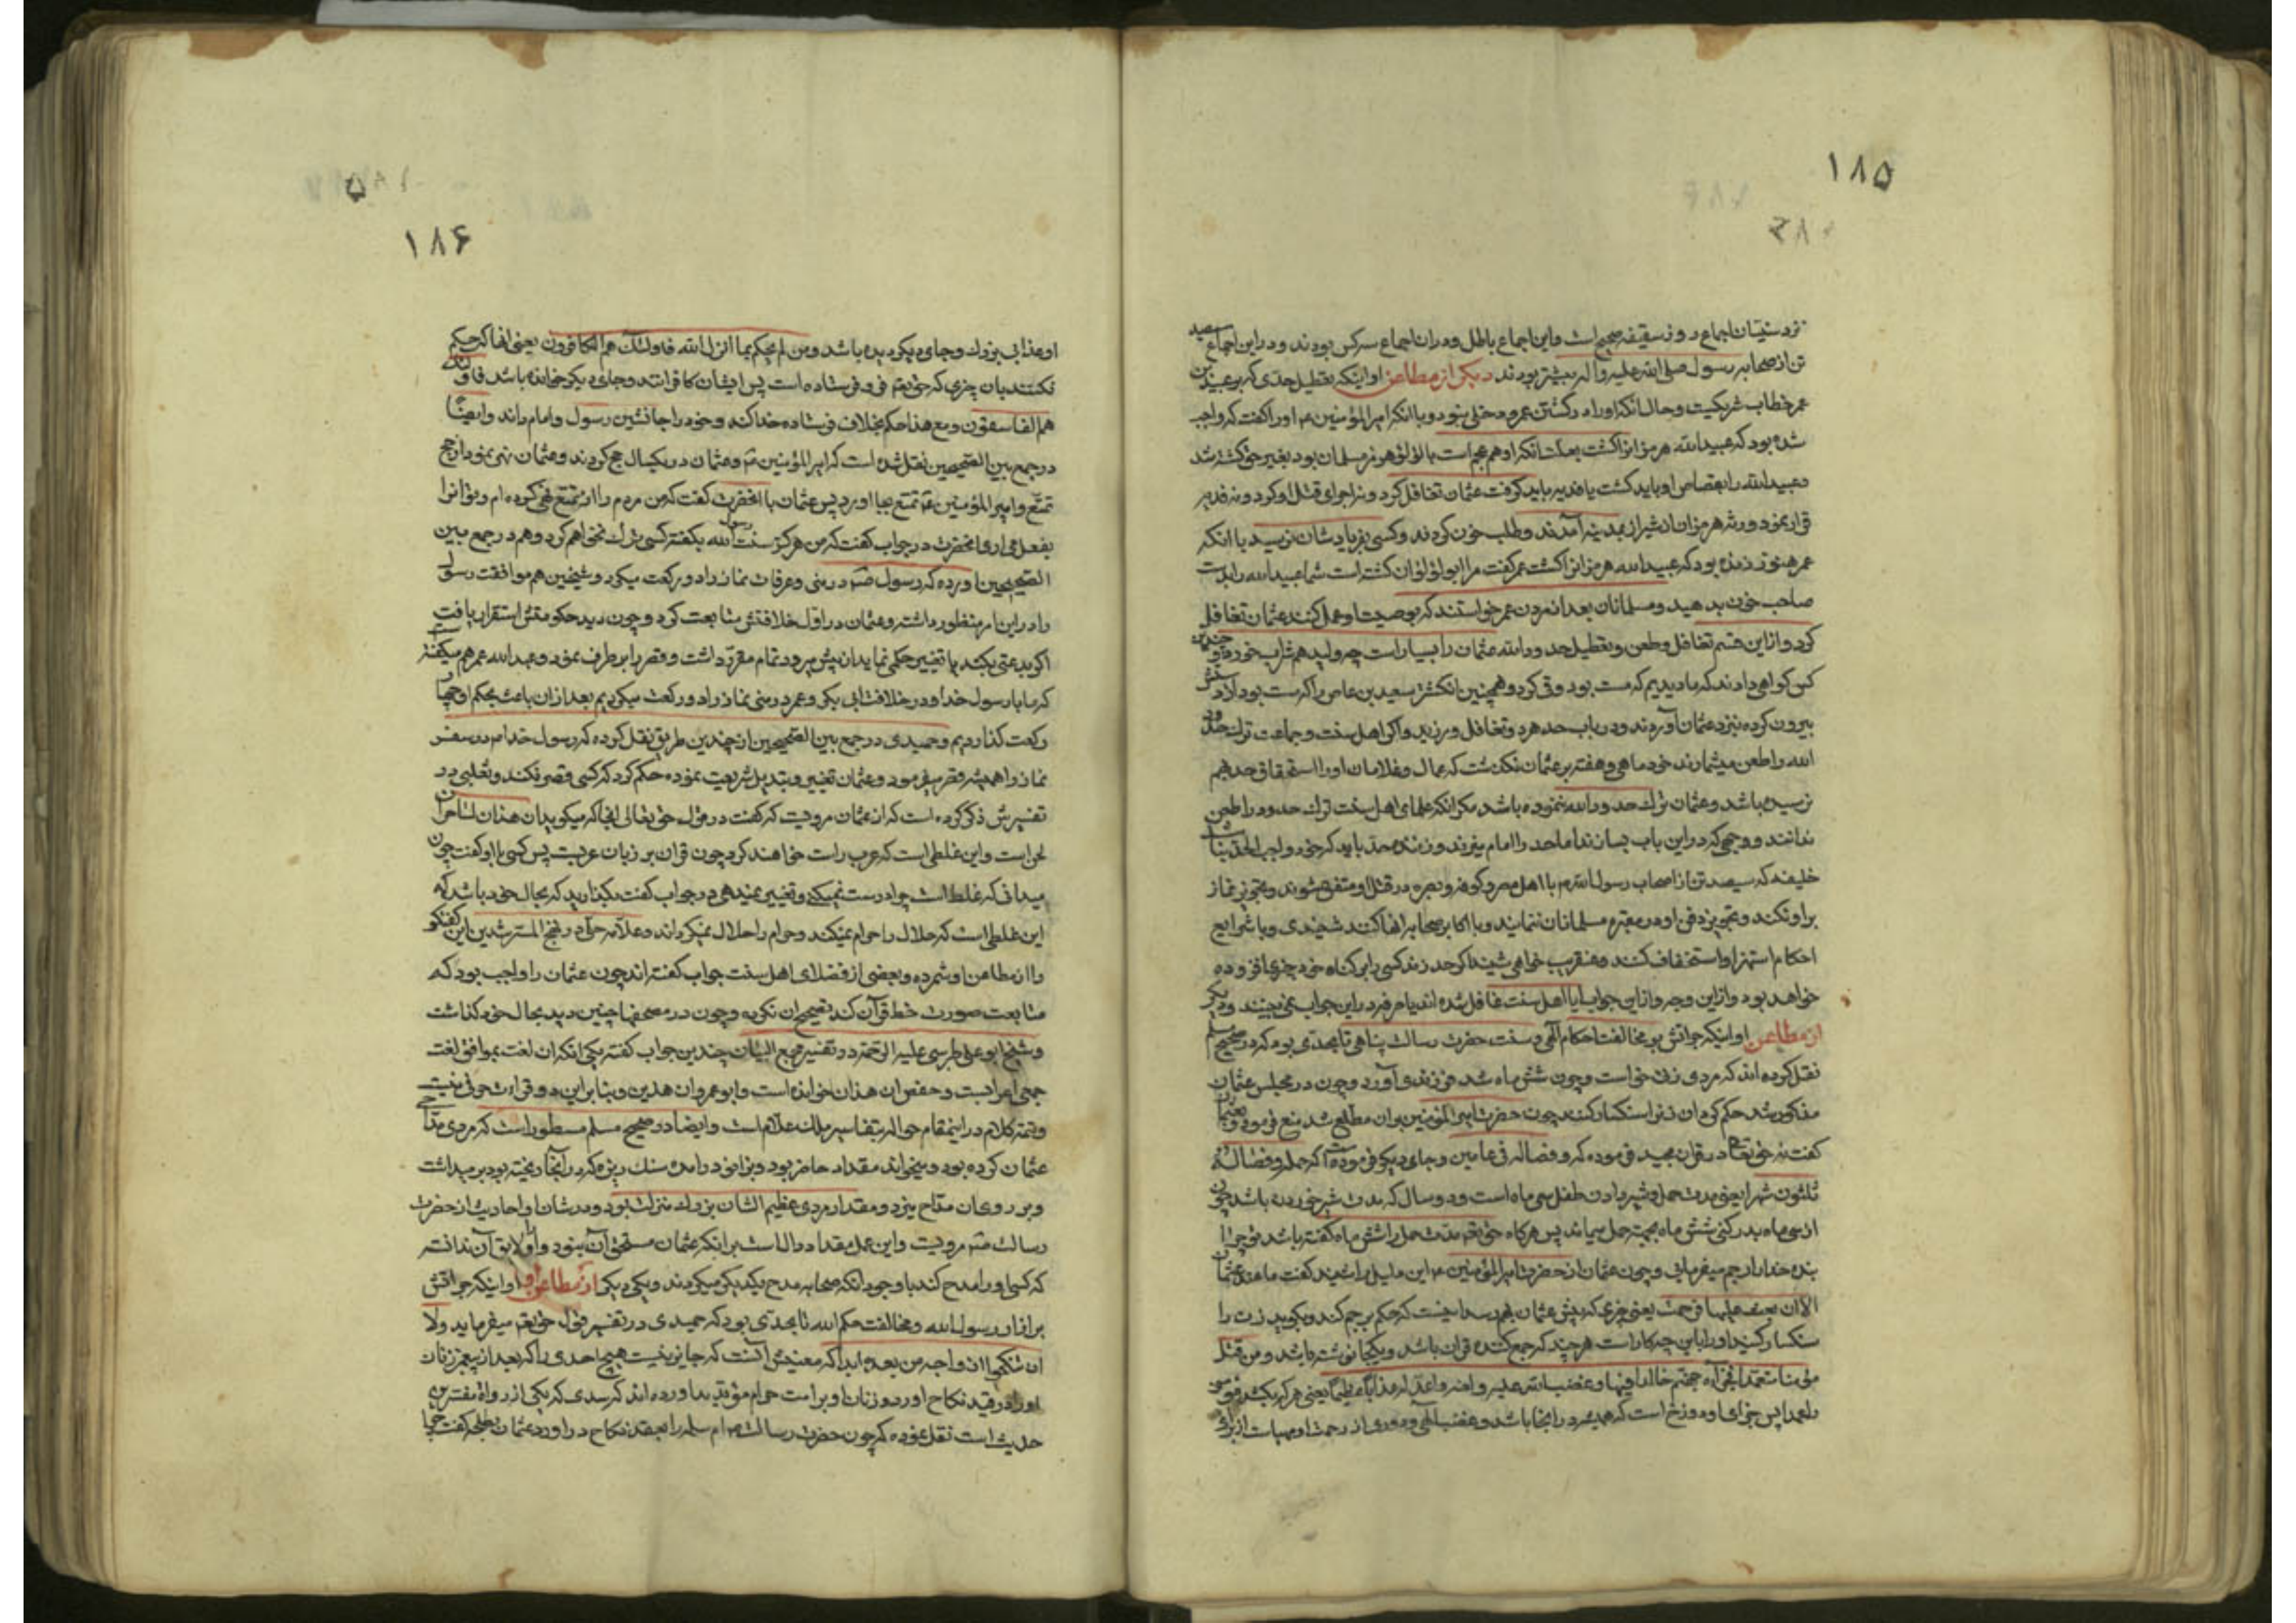 ۱۸۵
نزد سنیان اجماع روز سقیفه صحیح است و این اجماع باطل و در ان اجماع سرکس بودند و در این اجماع سیصد
تن از صحابه رسول صلی الله علیه و اله بیشتر بودند دیکر از مطاعن او اینکه تعطیل حدی که بر عبید بن
عمر خطاب شریکیت و حال انکه او را در کشتن عمر دخلی نبود و با انکه امیر المؤمنین ع او را کفت که واجب
شده بود که عبید الله هرمزان را کشت بعلت انکه او هم عجم است با لؤلؤ هرمز مسلمان بود بغیر حق کشته شد
و عبید الله را بقصاص او باید کشت یا فدیه باید کرفت عثمان تغافل کرد و نه اجرای قتل او کرد و نه فدیه
قرار نمود و ورثه هرمزان از شیراز بمدینه آمدند و طلب خون کردند و کسی بفریادشان نرسید با انکه
عمر هنوز زنده بود که عبید الله هرمزان را کشت عمر کفت مرا ابو لؤلؤ ان کشته است شما عبید الله را بدست
صاحب خون بدهید و مسلمانان بعد از مردن عمر خواستند که بوصیت او عمل کنند عثمان تغافل
کرد و از این قسم تغافل و طعن و تعطیل حدود الله عثمان را بسیار است چه ولید هم شراب خورد و چندین
کس کواهی دادند که ما دیدیم که مست بود و قی کرد و همچنین انکشتر سعید بن عاص را که مست بود از دستش
بیرون کرده نزد عثمان آوردند و در باب حد هر دو تغافل ورزید و اکر اهل سنت و جماعت ترک حدود
الله را طعن میشمارند خود ماهی و هفته بر عثمان نکذشت که عمال و غلامان او را استحقاق حد بهم
نرسیده باشد و عثمان ترک حدود الله ننموده باشد مکر انکه علمای اهل سنت ترک حدود را طعن
ندانند و وجهی که در این باب بسازند
خلیفه که سیصد تن از اصحاب رسول الله م با اهل مصر و کوفه و بصره در قتل او متفق شوند و تجویز نماز
بر او نکند و تجویز دفن او در مقبره مسلمانان ننمایند و با اکابر صحابه انها کند شنیدی و با شرایع
احکام استهزا و استخفاف کند و عنقریب خواهی شنید اکر حد زند کسی را بی کناه خود چیزی افزوده
خواهد بود و از این وجه و از این جواب ایا اهل سنت غافل شده اند یا مرفرد را این جواب نمی بینند و دیکر
از مطاعن او اینکه جرأتش بر مخالفت احکام آلهی و سنت حضرت رسالت پناهی تا بحدی بوده که در صحیح مسلم
نقل کرده اند که مردی زنی خواست و چون شش ماه شد فرزندی آورد و چون در مجلس عثمان
مذکور شد حکم کرد ان زن را سنکسار کنند چون حضرت امیر المؤمنین بر ان مطلع شد منع فرمود و بعثمان
کفت نه حق تعالی در قران مجید فرموده که و فصاله فی عامین و جای دیکر فرموده که حمله و فصاله
ثلثون شهرا یعنی مدت حمل و شیر دادن طفل سی ماه است و دو سال که مدت شیر خوردن باشد چون
از سی ماه بدر کنی شش ماه بجهت حمل میماند پس هرکاه حق تعم مدت حمل را شش ماه کفته باشد تو چرا
بنده خدا را رجم میفرمائی و چون عثمان از حضرت امیر المؤمنین ع این دلیل را شنید کفت ما عند عثمان
الا ان بعث علیها فرجمت یعنی چیزی که پیش عثمان بهم رسد اینست که حکم بر رجم کند و بکوید زن را
سنکسار کنید او را با این چه کار است هرچند که جمع کننده قران باشد و یکجا نوشته باشد و من قتل
مؤمنا متعمدا فجزآءه جهنم خالدا فیها و غضب الله علیه و لعنه و اعد له عذابا عظیما یعنی هر که بکشد مؤمنی
را عمدا پس جزای او دوزخ است که همیشه در انجا باشد و غضب الهی و دوری از رحمت او مهیاست از برای
۱۸۶
او عذابی بزرك و جای دیکر دیده باشد و من لم یحکم بما انزل الله فاولئك هم الکافرون یعنی انها که حکم
نکنند بان چیزی که حق تعم فرو فرستاده است پس ایشان کافرانند و جای دیکر خوانده باشد فاولئك
هم الفاسقون و مع هذا حکم بخلاف فرستاده خدا کند و خود را جانشین رسول و امام داند و ایضا
در جمع بین الصحیحین نقل شده است که امیر المؤمنین ع و عثمان در یکسال حج کردند و عثمان نهی نمود از حج
تمتع و امیر المؤمنین ع تمتع بجا اورد پس عثمان با انحضرت کفت که من مردم را از تمتع نهی کرده ام و تو انرا
بفعل می اری انحضرت در جواب کفت که من هرکز سنت رسول الله بکفته کسی ترك نخواهم کرد و هم در جمع بین
الصحیحین اورده که رسول ص در منی و عرفات نماز را دو رکعت میکرد و شیخین هم موافقت رسول
را در این امر منظور داشته و عثمان در اول خلافتش متابعت کرد و چون دید حکومتش استقرار یافت
اکر بدعتی بکند یا تغییر حکمی نماید از پیش میرود تمام مقرر داشت و قصر را بر طرف نمود و عبد الله عمر هم میکفته است
که ما با رسول خدا و در خلافت ابی بکر و عمر در منی نماز را دو رکعت میکردیم بعد از ان باعث بحکم او چهار
رکعت کذاردیم و حمیدی در جمع بین الصحیحین از چندین طریق نقل کرده که رسول خدا م در سفر
نماز را همیشه قصر میفرمود و عثمان تغییر و تبدیل شریعت نموده حکم کرد که کسی قصر نکند و ثعلبی در
تفسیرش ذکر کرده است که از عثمان مرویست که کفت در قول حق تعالی انجا که میکوید ان هذان لساحران
لحن است و این غلطی است که عرب راست خواهند کرد چون قران بر زبان عربست پس کسی با او کفت چون
میدانی که غلط است چرا درست نمیکنی و تغییر نمیدهی در جواب کفت بکذارید که بحال خود باشد که
این غلطی است که حلال را حرام نمیکند و حرام را حلال نمیکرداند و علامه حلی در نهج المسترشدین این کفتکو
را از مطاعن او شمرده و بعضی از فضلای اهل سنت جواب کفته اند چون عثمان را واجب بود که
متابعت صورت خط قرآن کند تصحیح ان نکرده و چون در مصحفها چنین دید بحال خود کذاشت
و شیخ ابو علی طبرسی علیه الرحمة در تفسیر مجمع البیان چندین جواب کفته یکی انکه ان لغت بموافق لغت
جمعی اعرابست و حفص ان هذان خوانده است و ابو عمرو ان هذین و بنابراین دو قراءت حرفی نیست
و تتمه کلام در اینمقام حواله بتفاسیر ملك علام است و ایضا در صحیح مسلم مسطور است که مردی مداحی
عثمان کرده بود و میخواند مقداد حاضر بود و بزانو در امده سنك ریزه که در آنجا ریخته بود بر میداشت
و بر روی ان مداح میزد و مقداد مردی عظیم الشان بزرك منزلت بود و در شان او احادیث از حضرت
رسالت ص مرویست و این عمل مقداد دال است بر انکه عثمان مستحق آن نبود و او را لایق آن ندانسته
که کسی او را مدح کند با وجود انکه صحابه مدح یکدیکر میکردند و یکی دیکر از مطاعن او اینکه جرأتش
بر ازار رسول الله و مخالفت حکم الله تا بحدی بود که حمیدی در تفسیر قول حق تعم میفرماید ولا
ان تنکحوا ازواجه من بعده ابدا که معنیش آنست که جایز نیست هیچ احدی را که بعد از پیغمبر زنان
او را در قید نکاح اورد و زنان او بر امت حرام مؤبدند اورده اند که سدی که یکی از رواة مفسرین
حدیث است نقل نموده که چون حضرت رسالت م ام سلمه را بعقد نکاح در اورد عثمان بطلحه کفت چرا